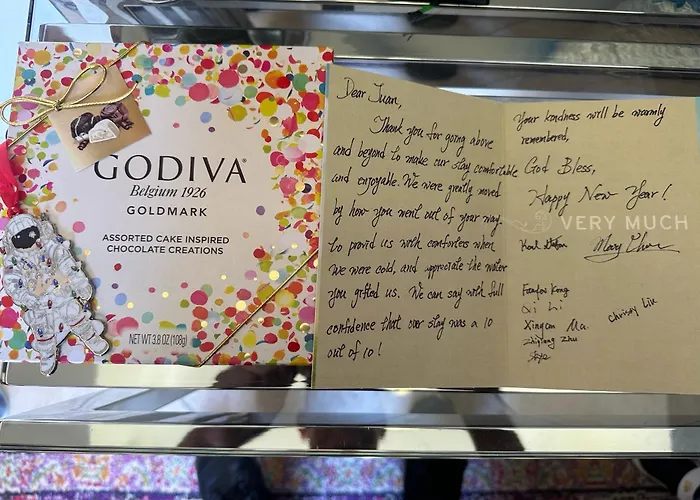 GODIVA
Belgium 1926
GOLDMARK
ASSORTED CAKE INSPIRED
CHOCOLATE CREATIONS
NET WT 3.8 OZ (108g)
Dear Juan,
Thank you for going above
and beyond to make our stay comfortable
and enjoyable. We were greatly moved
by how you went out of your way
to provid us with comforters when
we were cold, and appreciate the water
you gifted us. We can say with full
confidence that our stay was a 10
out of 10!
Your kindness will be warmly
remembered,
God Bless,
Happy New Year!
VERY MUCH
Mary
Kong
Qi Li
Ma.
Zhu
Skye
Christy Liu